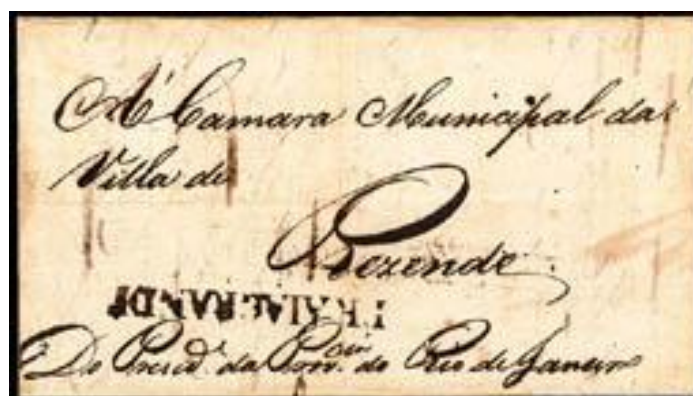 A' Camara Municipal da
Villa de
Rezende.
PRAIAGRANDE
Do Presid.e da Prov.cia do Rio de Janeiro